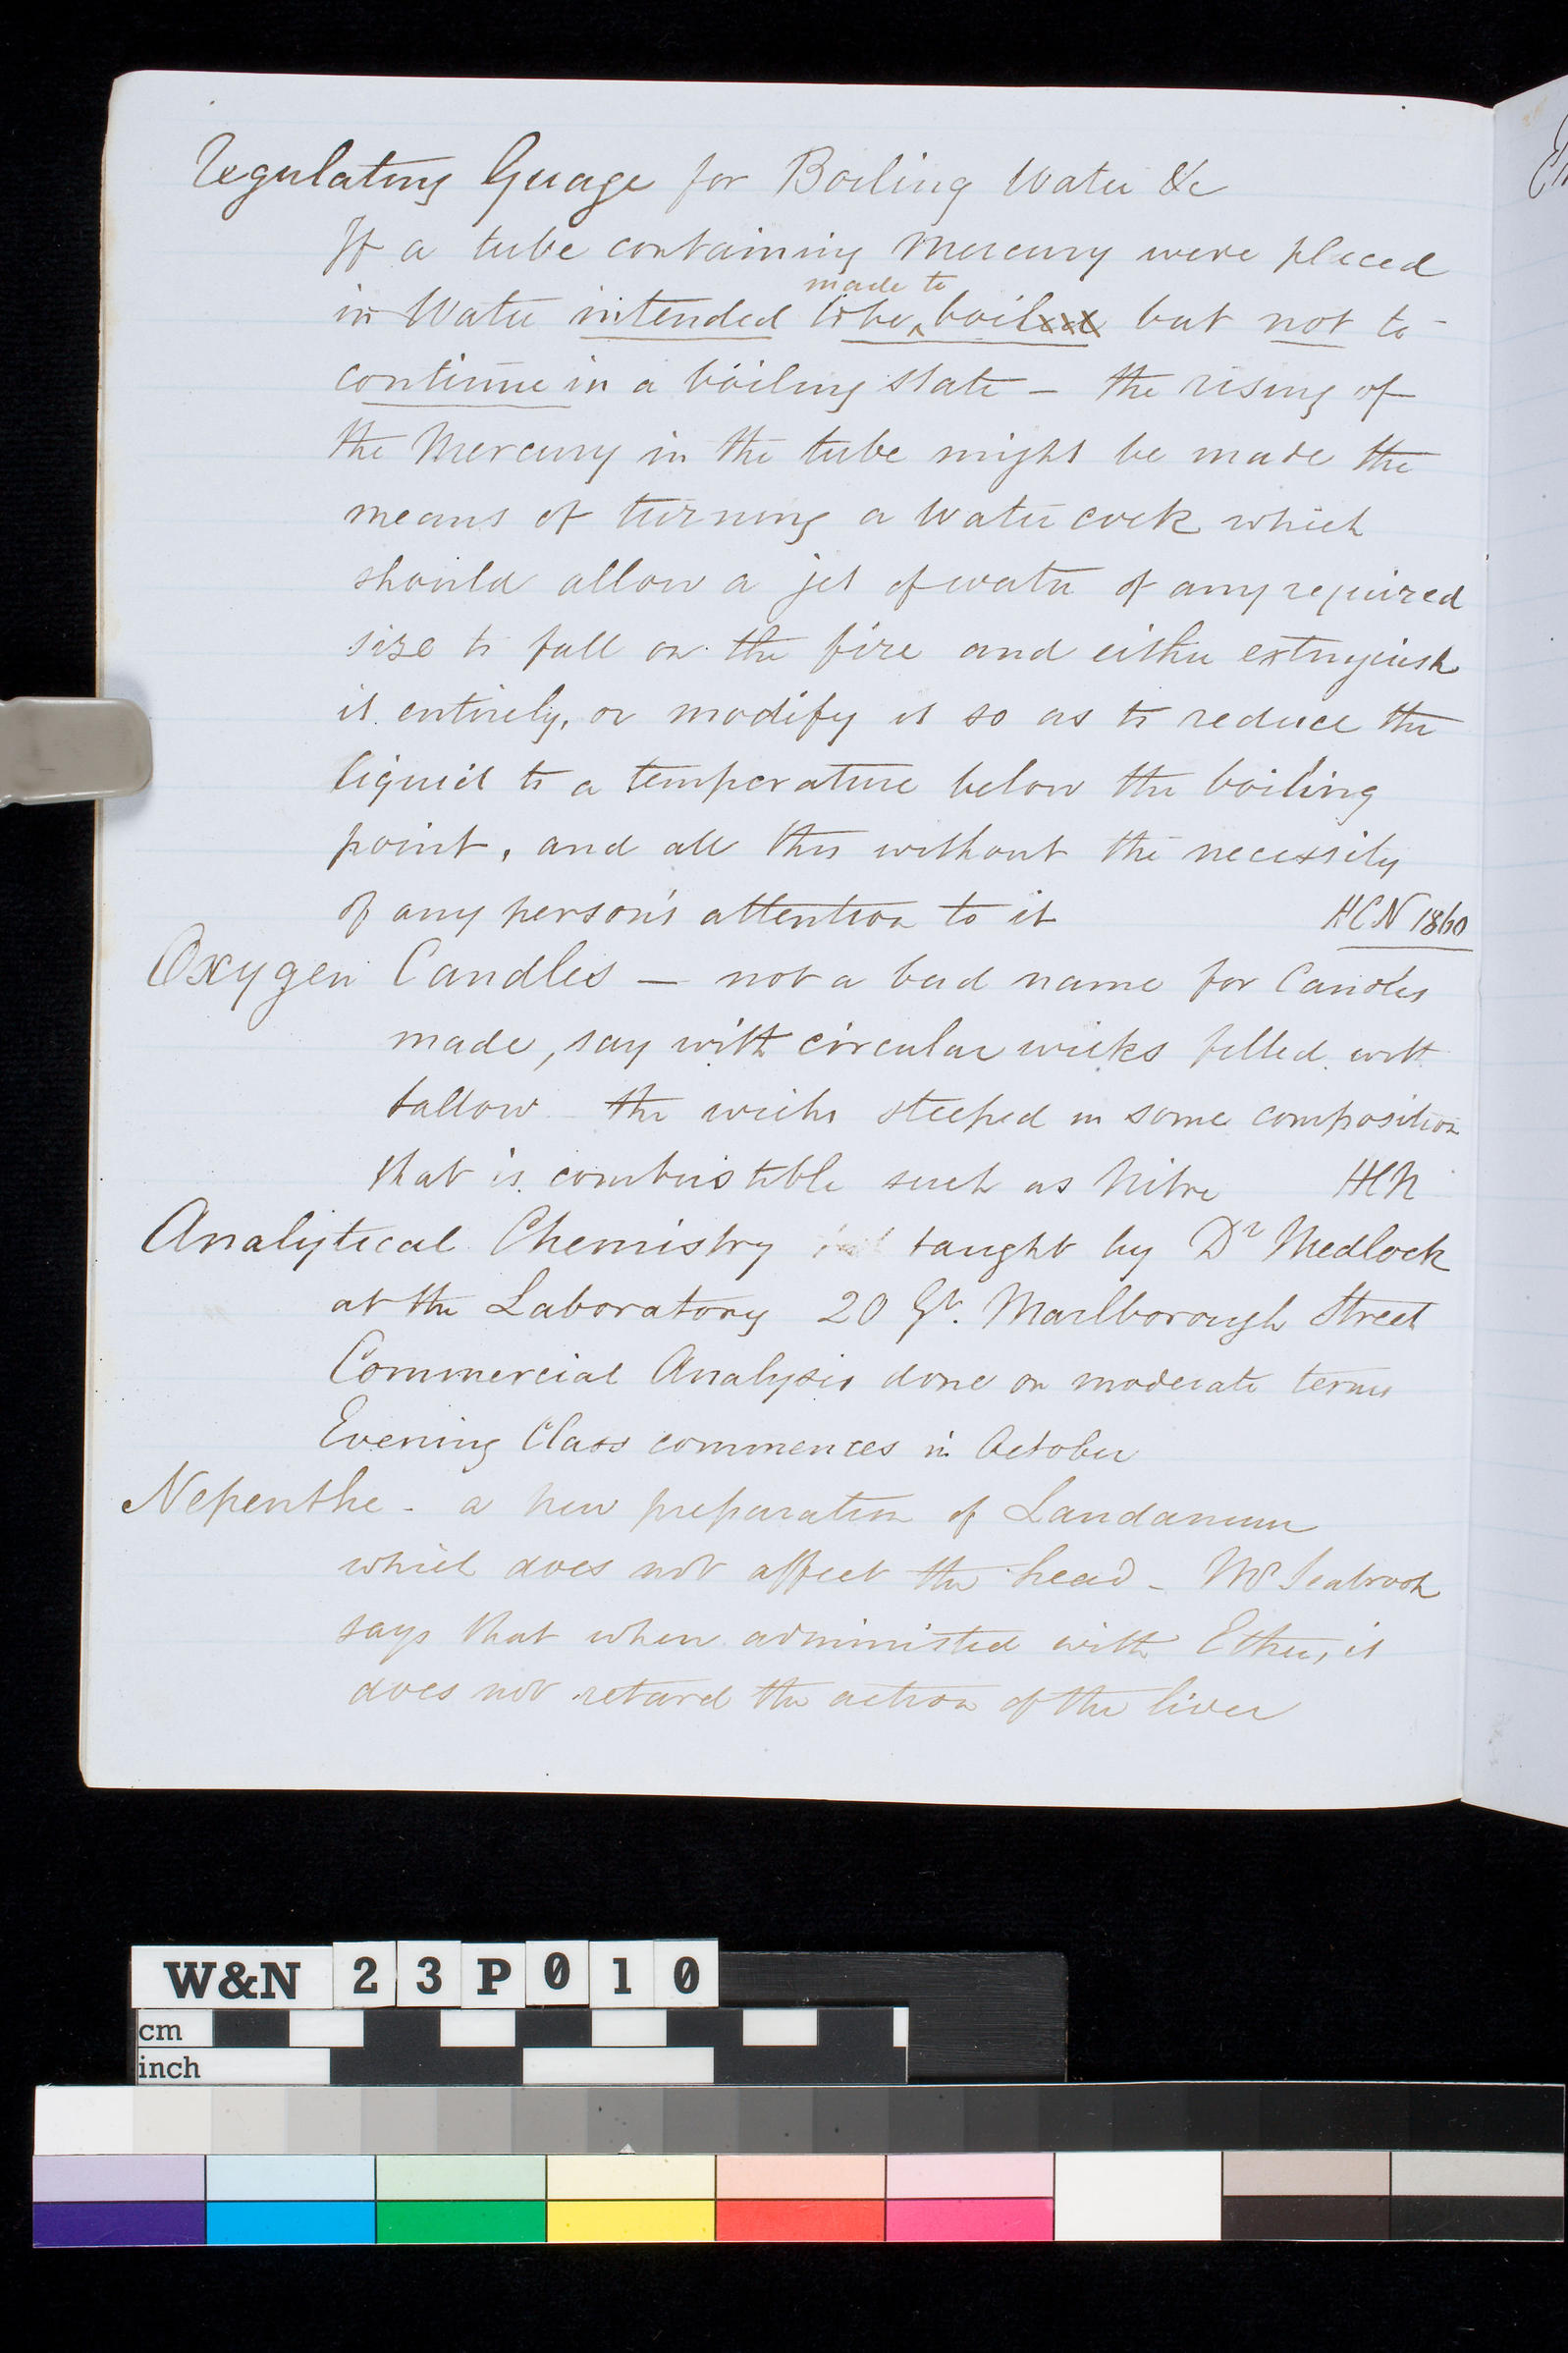 Regulating Guage for Boiling Water &c
If a tube containing Mercury were placed
made to
in Water intended to be boiled but not to
continue in a boiling state – the rising of
the Mercury in the tube might be made the
means of turning a Water cock which
should allow a jet of water of any required
size to fall on the fire and either extinguish
it entirely, or modify it so as to reduce the
liquid to a temperature below the boiling
point, and all this without the necessity
of any person's attention to it HCN 1860
Oxygen Candles — not a bad name for Candles
made, say with circular wicks filled with
tallow the wicks steeped in some composition
that is combustible such as Nitre HCN
Analytical Chemistry taught by Dr Medlock
at the Laboratory 20 Gt. Marlborough Street
Commercial Analysis done on moderate terms
Evening Class commences in October
Nepenthe - a new preparation of Laudanum
which does not affect the head – Mr Seabrook
says that when administed with Ether, it
does not retard the action of the liver
W&N 23P010
cm
inch